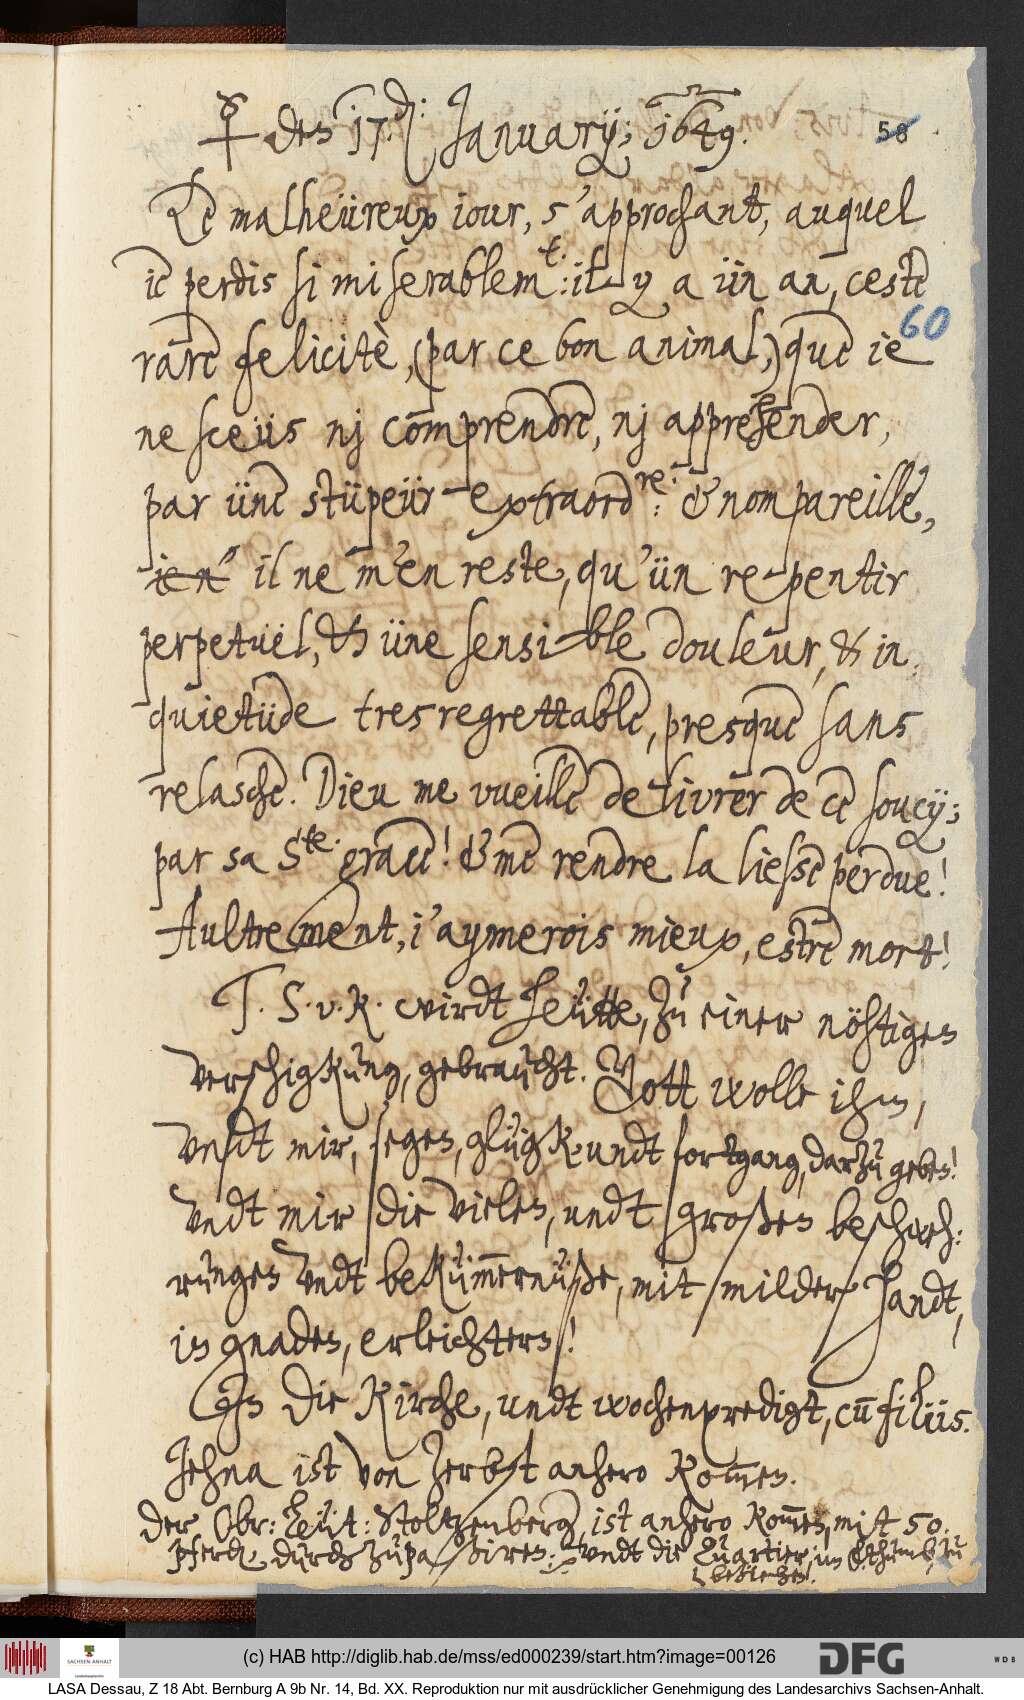 ☿ den 17. d: January; 1649.
58
Le malheüreux iour, s'approchant, auquel
ie perdis si miserablem.t: il y a ün an, ceste
60
rare felicitè, (par ce bon animal,) que ie
ne sceüs nj comprendre, nj apprehender,
par üne stüpeür extraord.re: & nompareille,
ie n' il ne m'en reste, qu'ün repentir
perpetuël, & üne sensible douleur, & in
quietüde tresregrettable, presque sans
relasche. Dieu me vueille delivrer de ce soucy;
par sa Ste. grace! & me rendre la liesse perdue!
Aultrement, i'aymerois mieux, estre mort!
T. S. v. R. wirdt heütte, zu einer nöhtigen
verschigkung, gebraucht. Gott wolle ihm,
vndt mir, segen, glügk undt fortgang, darzu geben!
vndt mir die vielen, undt großen beschweh:
rungen vndt bekümmernüße, mit milder handt,
in gnaden, erleichtern!
In die Kirche, undt wochenpredigt, cum filiis.
Jehna ist von Zerbst anhero kommen.
der Obr: Leüt: Stoltzenberg, ist anhero kommen, mit 50.
pferden durch zu passiren: vndt die Quartier im
beziehen.
(c) HAB http://diglib.hab.de/mss/ed000239/start.htm?image=00126
SACHSEN-ANHALT
DFG
WDB
LASA Dessau, Z 18 Abt. Bernburg A 9b Nr. 14, Bd. XX. Reproduktion nur mit ausdrücklicher Genehmigung des Landesarchivs Sachsen-Anhalt.